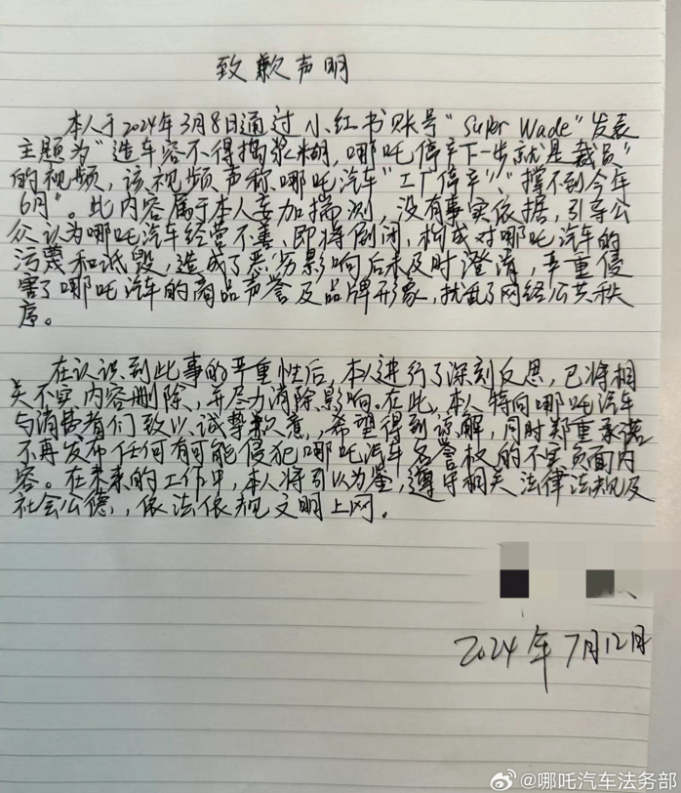 致歉声明
本人于2024年3月8日通过小红书账号"Super Wade"发表
主题为"造车容不得捣浆糊,哪吒停产下一步就是裁员"
的视频,该视频声称哪吒汽车"工厂停产"、"撑不到今年
6月"。此内容属于本人妄加揣测,没有事实依据,引导公
众认为哪吒汽车经营不善、即将倒闭,构成对哪吒汽车的
污蔑和诋毁,造成了恶劣影响后未及时澄清,严重侵
害了哪吒汽车的商品声誉及品牌形象,扰乱了网络公共秩
序。
在认识到此事的严重性后,本人进行了深刻反思,已将相
关不实内容删除,并尽力消除影响。在此,本人特向哪吒汽车
与消费者们致以诚挚歉意,希望得到谅解,同时郑重承诺
不再发布任何有可能侵犯哪吒汽车名誉权的不实负面内
容。在未来的工作中,本人将引以为鉴,遵守相关法律法规及
社会公德,,依法依规文明上网。
2024年7月12日
@哪吒汽车法务部